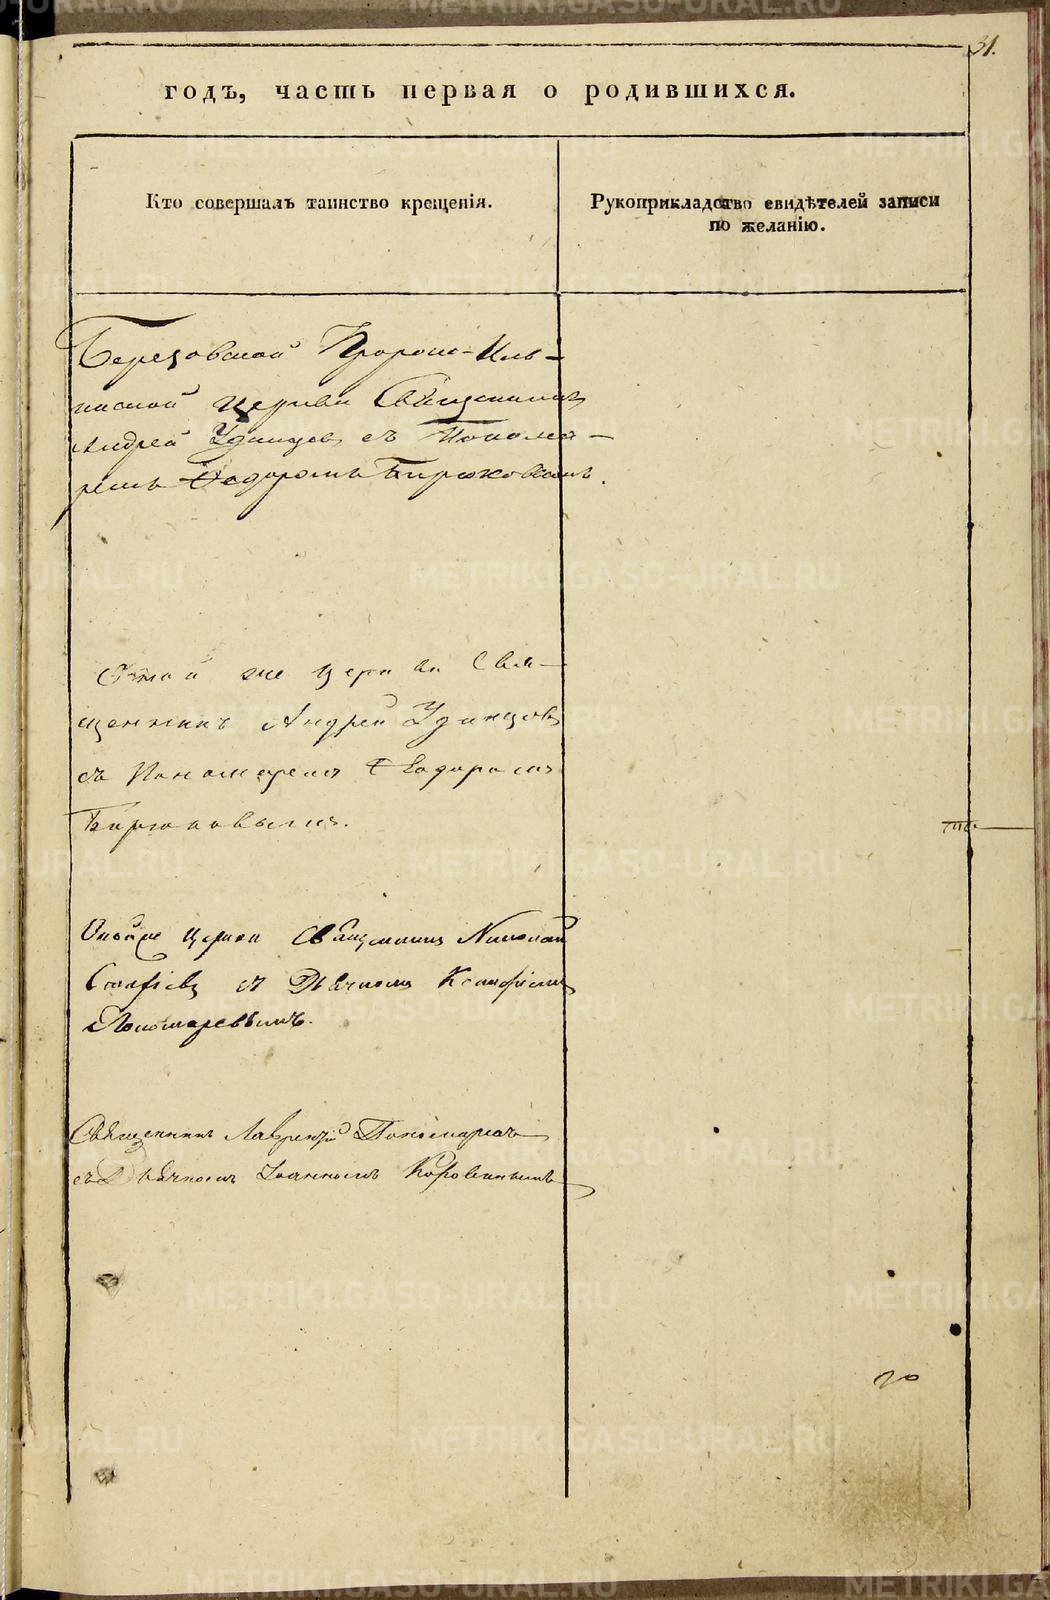 31.
годъ, часть первая о родившихся.
Кто совершалъ таинство крещенія.
Рукоприкладство свидѣтелей записи
по желанію.
Березовской Пророко-Иль-
инской церкви Священникъ
Андрей Удинцевъ съ Понома-
ремъ Ѳедоромъ Бирюковымъ.
Онтой же церкви Свя-
щенникъ Андрей Удинцовъ
съ Пономаремъ Ѳеодоромъ
Бирюковымъ.
Оной же церкви Священникъ Николай
съ Дьячкомъ
Пономаревымъ.
Священникъ Лаврентій Пономаревъ
съ Дьячкомъ Іоанномъ Коровинымъ
METRIKI.GASO-URAL.RU